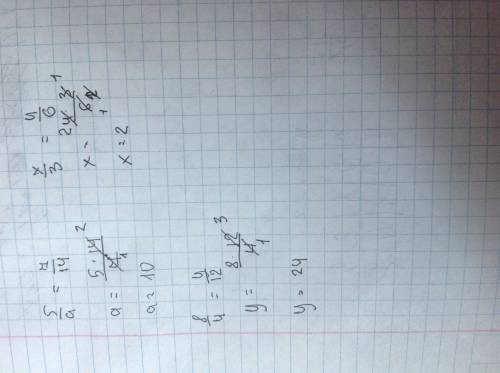 5/a = 7/14
a = 5·14 2/7 1
a = 10
8/4 = y/12
y = 8·12 3/4 1
y = 24
x/3 = 4/6
x = 2 4·3 1/6 2 1
x = 2